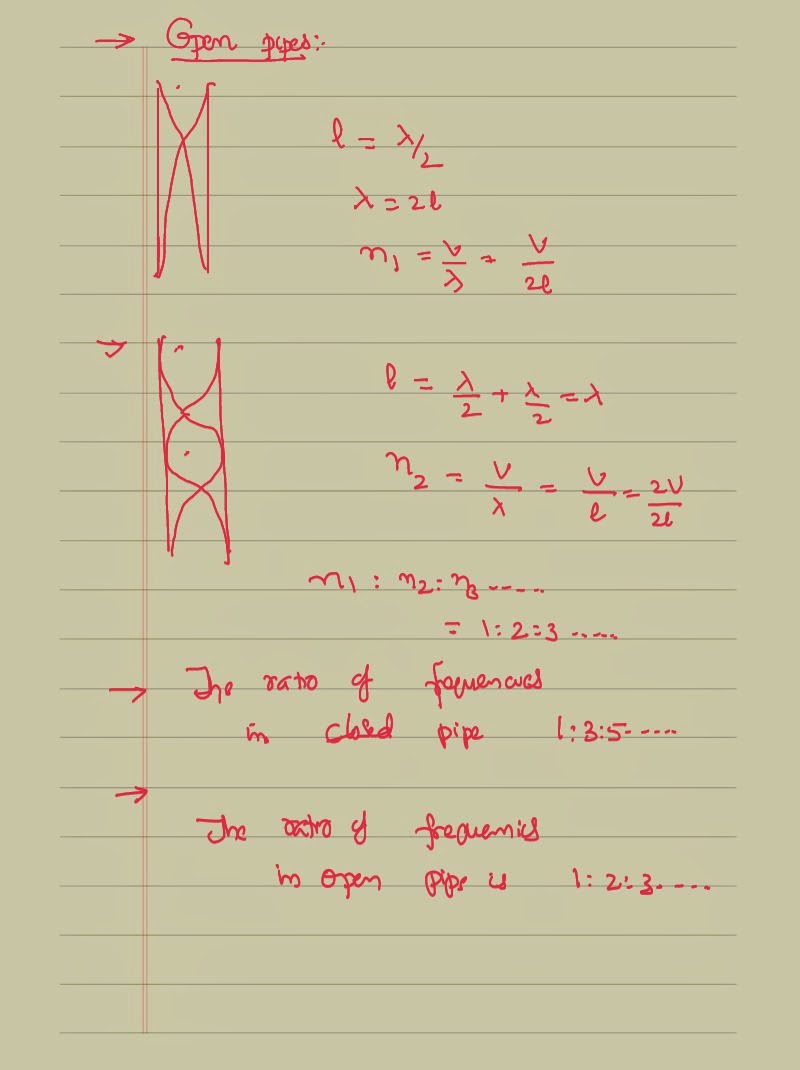 → Open pipes:-
l = λ/2
λ = 2l
n1 = V/λ = V/2l
→ l = λ/2 + λ/2 = λ
n2 = V/λ = V/l = 2V/2l
n1 : n2 : n3 ------
= 1 : 2 : 3 ......
→ The ratio of frequencies
in closed pipe 1 : 3 : 5 -----
→
The ratio of frequencies
in open pipe is 1 : 2 : 3 .....